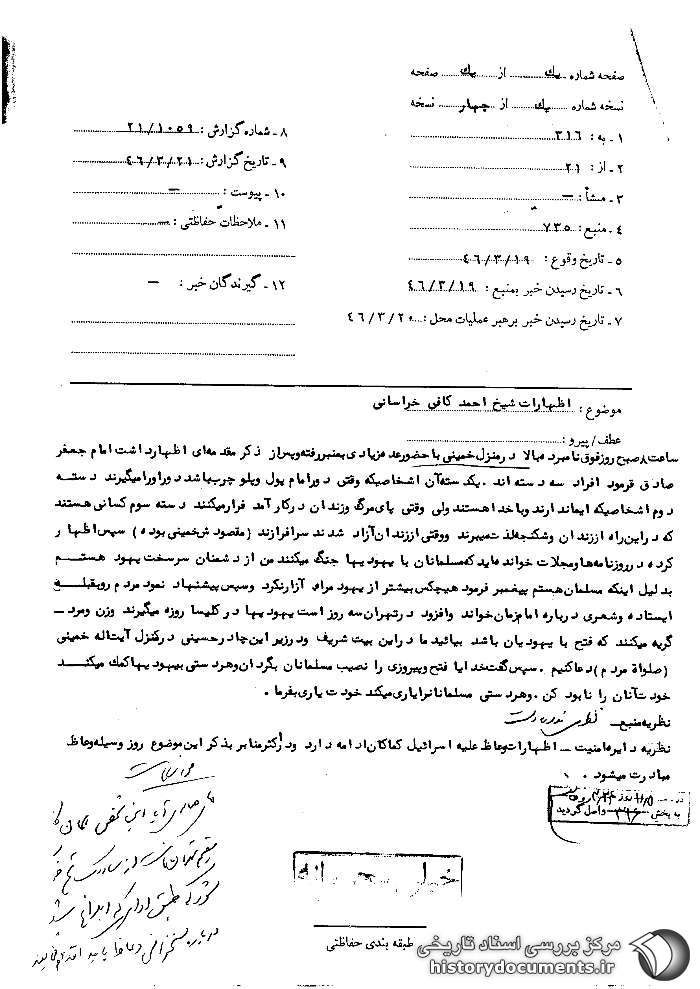 صفحه شماره يك از يك صفحه
نسخه شماره يك از چهار نسخه
۱ - به : ۳۱۶
۲ - از : ۲۱
۳ - منشأ : —
۴ - منبع : ۷۳۵
۵ - تاریخ وقوع : ۴۶/۳/۱۹
۶ - تاریخ رسیدن خبر بمنبع : ۴۶/۳/۱۹
۷ - تاریخ رسیدن خبر برهبر عملیات محل : ۴۶/۳/۲۰
۸ - شماره گزارش : ۲۱/۱۰۵۹
۹ - تاریخ گزارش : ۴۶/۳/۲۱
۱۰ - پیوست : —
۱۱ - ملاحظات حفاظتی : —
۱۲ - گیرندگان خبر : —
موضوع : اظهارات شیخ احمد کافی خراسانی
عطف / پیرو :
ساعت ۸ صبح روز فوق نامبرده بالا در منزل خمینی با حضور عده زیادی بمنبر رفته و پس از ذکر مقدمه ای اظهار داشت امام جعفر
صادق فرمود افراد سه دسته اند . یکدسته آن اشخاصیکه وقتی دور امام پول و پلو چرب باشد دور او را میگیرند دسته
دوم اشخاصیکه ایمان دارند و با خدا هستند ولی وقتی پای مرگ و زندان در کار آمد فرار میکنند دسته سوم کسانی هستند
که در این راه از زندان و شکنجه لذت میبرند و وقتی از زندان آزاد شدند سرافرازند (مقصودش خمینی بوده) سپس اظهار
کرد ه در روزنامه ها و مجلات خوانده اید که مسلمانان با یهودیها جنگ میکنند من از دشمنان سرسخت یهود هستم
بدلیل اینکه مسلمان هستم پیغمبر فرمود هیچکس بیشتر از یهود مرا آزار نکرد و سپس پیشنهاد نمود مردم رو بقبله
ایستاده و شعری درباره امام زمان خواند و افزود در تهران سه روز است یهودیها در کلیسا روزه میگیرند و زن و مرد
گریه میکنند که فتح با یهودیان باشد بیائید ما در این بیت شریف و در زیر این چادر حسینی در منزل آیت اله خمینی
(صلواة مردم) دعا کنیم . سپس گفت خدایا فتح و پیروزی را نصیب مسلمانان بگردان و هر دستی بیهودیها کمک میکند
خودت آنان را نابود کن . و هر دستی مسلمانان را یاری میکند خودت یاری بفرما .
نظریه منبع - نظری ندارد
نظریه دایره امنیت - اظهارات وعاظ علیه اسرائیل کماکان ادامه دارد و در اکثر منابر بذکر این موضوع روز وسیله وعاظ
مبادرت میشود .
به بخش ۳۱۶ واصل گردید
خیلی محرمانه
طبقه بندی حفاظتی
مرکز بررسی اسناد تاریخی
historydocuments.ir